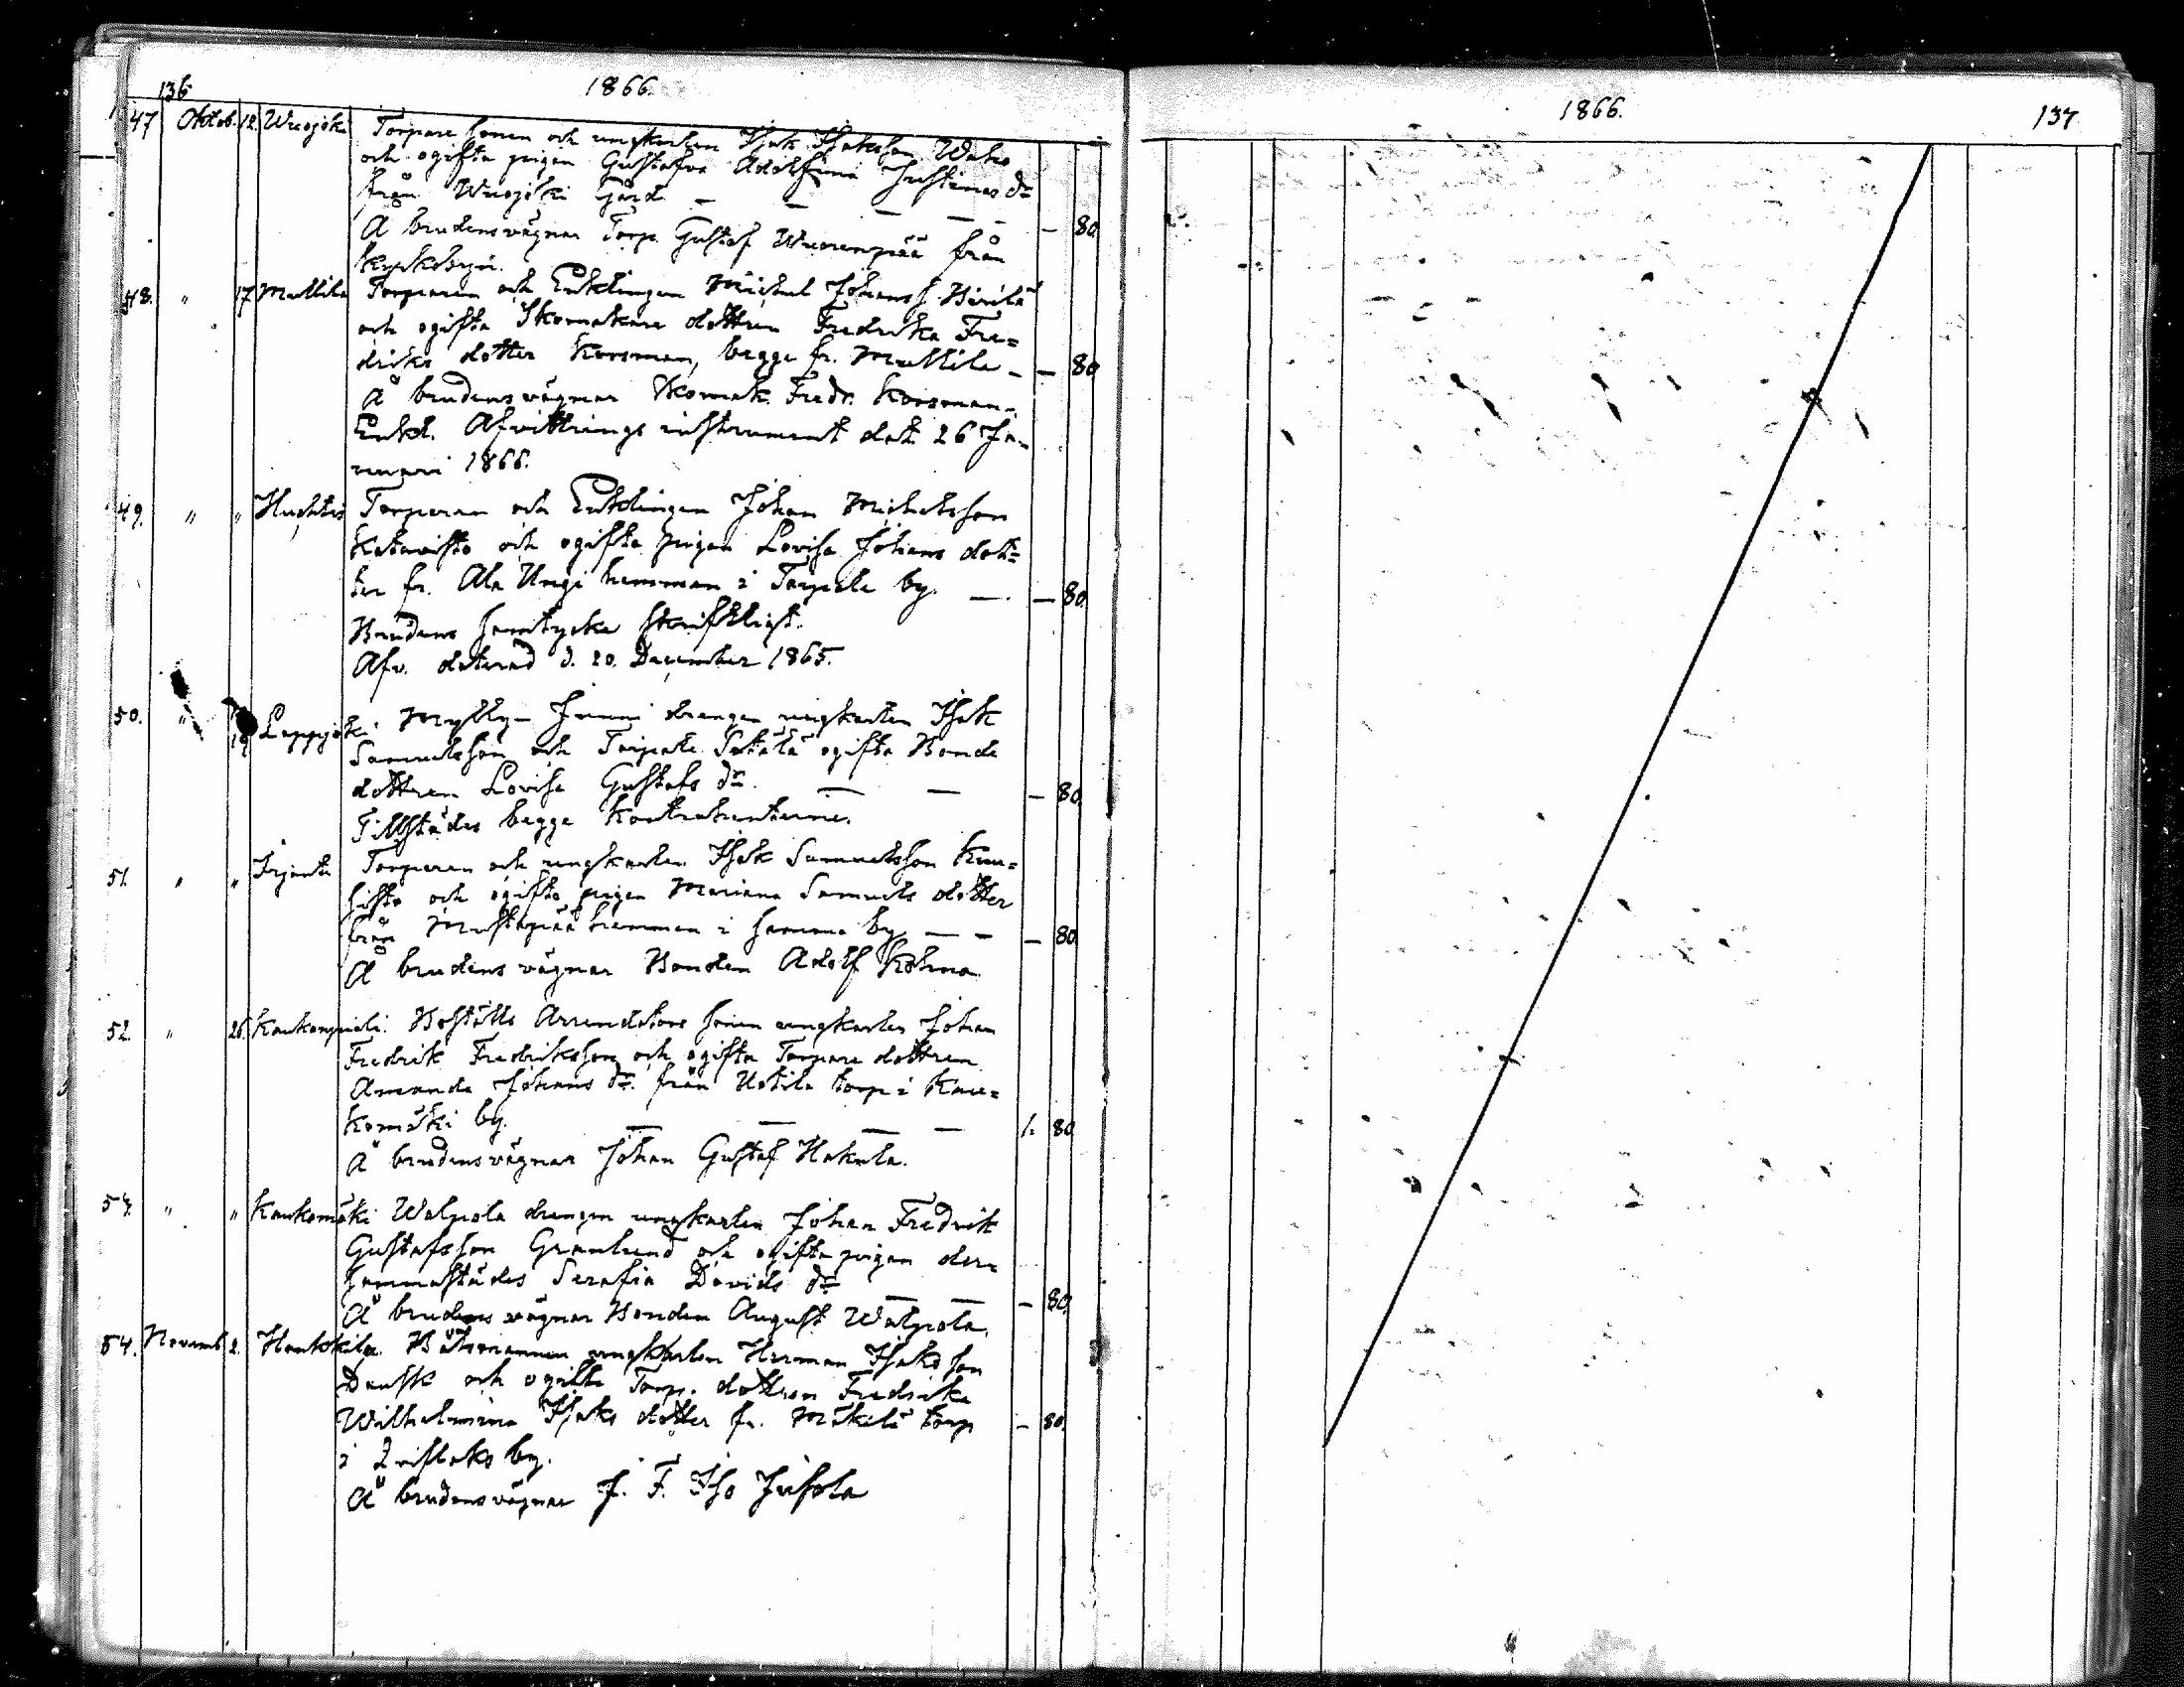 136
1866.
47 Octob. 12. Wuojoki Torpare sonen och ungkarlen Isak Isaksson Waho
och ogifta pigan Gustafva Adolfina Justinas dr
från Wuojoki Gård. — — — — — — 80.
Å brudens vägnar Torp. Gustaf Wuorenpää från
Kyrkobyn.
48. " 17 Mullila Torparen och Enklingen Michel Johanss. Heinilä
och ogifta Skomakare dottren Fredrika Fre=
driks dotter Korsman, begge fr. Mullila — — 80
Å brudens vägnar Skomak. Fredr. Korsman.
Enkl. Afvittrings instrument dat. 26 Ja-
nuari 1866.
49. " " Huchtis Torparen och Enklingen Johan Michelsson
Katavisto och ogifta pigan Lovisa Johans dot=
ter fr. Ala Ungi hemman i Tarpila by. — — 80.
Brudens samtycke skriftligt.
Afv. daterad d. 20. December 1865.
50. " 19 Lappijoki. Mylly-Jussi drängen ungkarlen Isak
Samuelsson och Taipale Sätälä ogifta Bonde
dottren Lovisa Gustafs dr. — — — 80.
Tillstädes begge Kontrahenterne.
51. " " Irjanta Torparen och ungkarlen Isak Samuelsson Kuu=
sisto och ogifta pigan Mariana Samuels dotter
från Mustapää hemman i samma by — — — 80.
Å brudens vägnar Bonden Adolf Kohma
52. " 26. Kaukonpieli. Boställs Arrendators sonen ungkarlen Johan
Fredrik Fredriksson och ogifta Torpare dottren
Amanda Johans dr. från Uotila torp i Kau=
komäki by. — — — — 1. 80
Å brudens vägnar Johan Gustaf Hakula.
53. " " Kaukomäki Walpola drängen ungkarlen Johan Fredrik
Gustafsson Grönlund och ogifta pigan der=
sammastädes Serafia Davids dr — — — 80.
Å brudens vägnar Bonden August Walpola.
54. Novemb. 2. Hankkila. Båtsmannen ungkarlen Herman Isaksson
Dansk och ogifta Torp. dottren Fredrika
Wilhelmina Isaks dotter fr. Mäkilä torp — 80.
i by.
Å brudens vägnar J. F. Iso Jusola
1866.
137